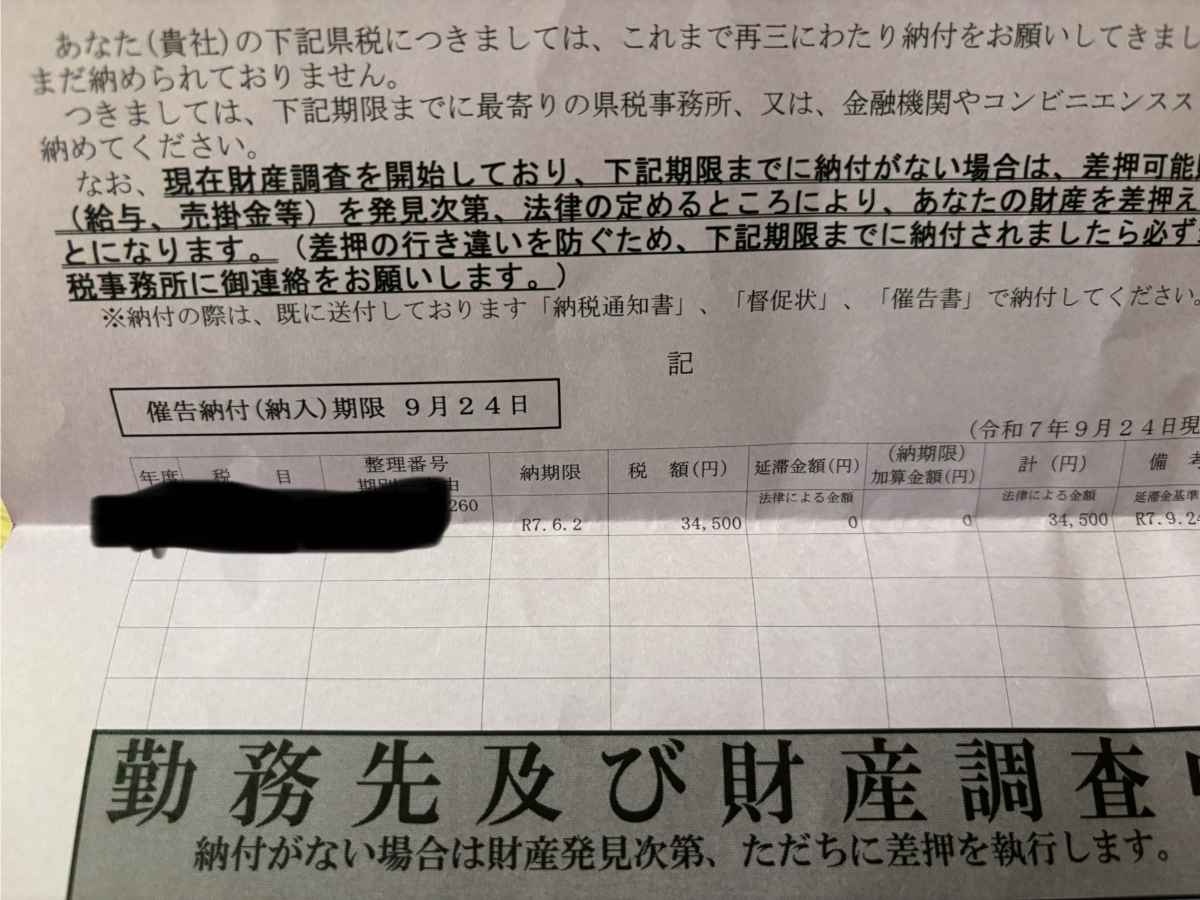 あなた(貴社)の下記県税につきましては、これまで再三にわたり納付をお願いしてきまし
まだ納められておりません。
つきましては、下記期限までに最寄りの県税事務所、又は、金融機関やコンビニエンスス
納めてください。
なお、現在財産調査を開始しており、下記期限までに納付がない場合は、差押可能
(給与、売掛金等)を発見次第、法律の定めるところにより、あなたの財産を差押え
とになります。(差押の行き違いを防ぐため、下記期限までに納付されましたら必ず
税事務所に御連絡をお願いします。)
※納付の際は、既に送付しております「納税通知書」、「督促状」、「催告書」で納付してください。
記
催告納付(納入)期限 9月24日
(令和7年9月24日現
年度 税 目 整理番号 納期限 税 額(円) 延滞金額(円) (納期限) 加算金額(円) 計(円) 備 考
260 法律による金額 法律による金額 延滞金基準
R7.6.2 34,500 0 0 34,500 R7.9.24
勤務先及び財産調査
納付がない場合は財産発見次第、ただちに差押を執行します。